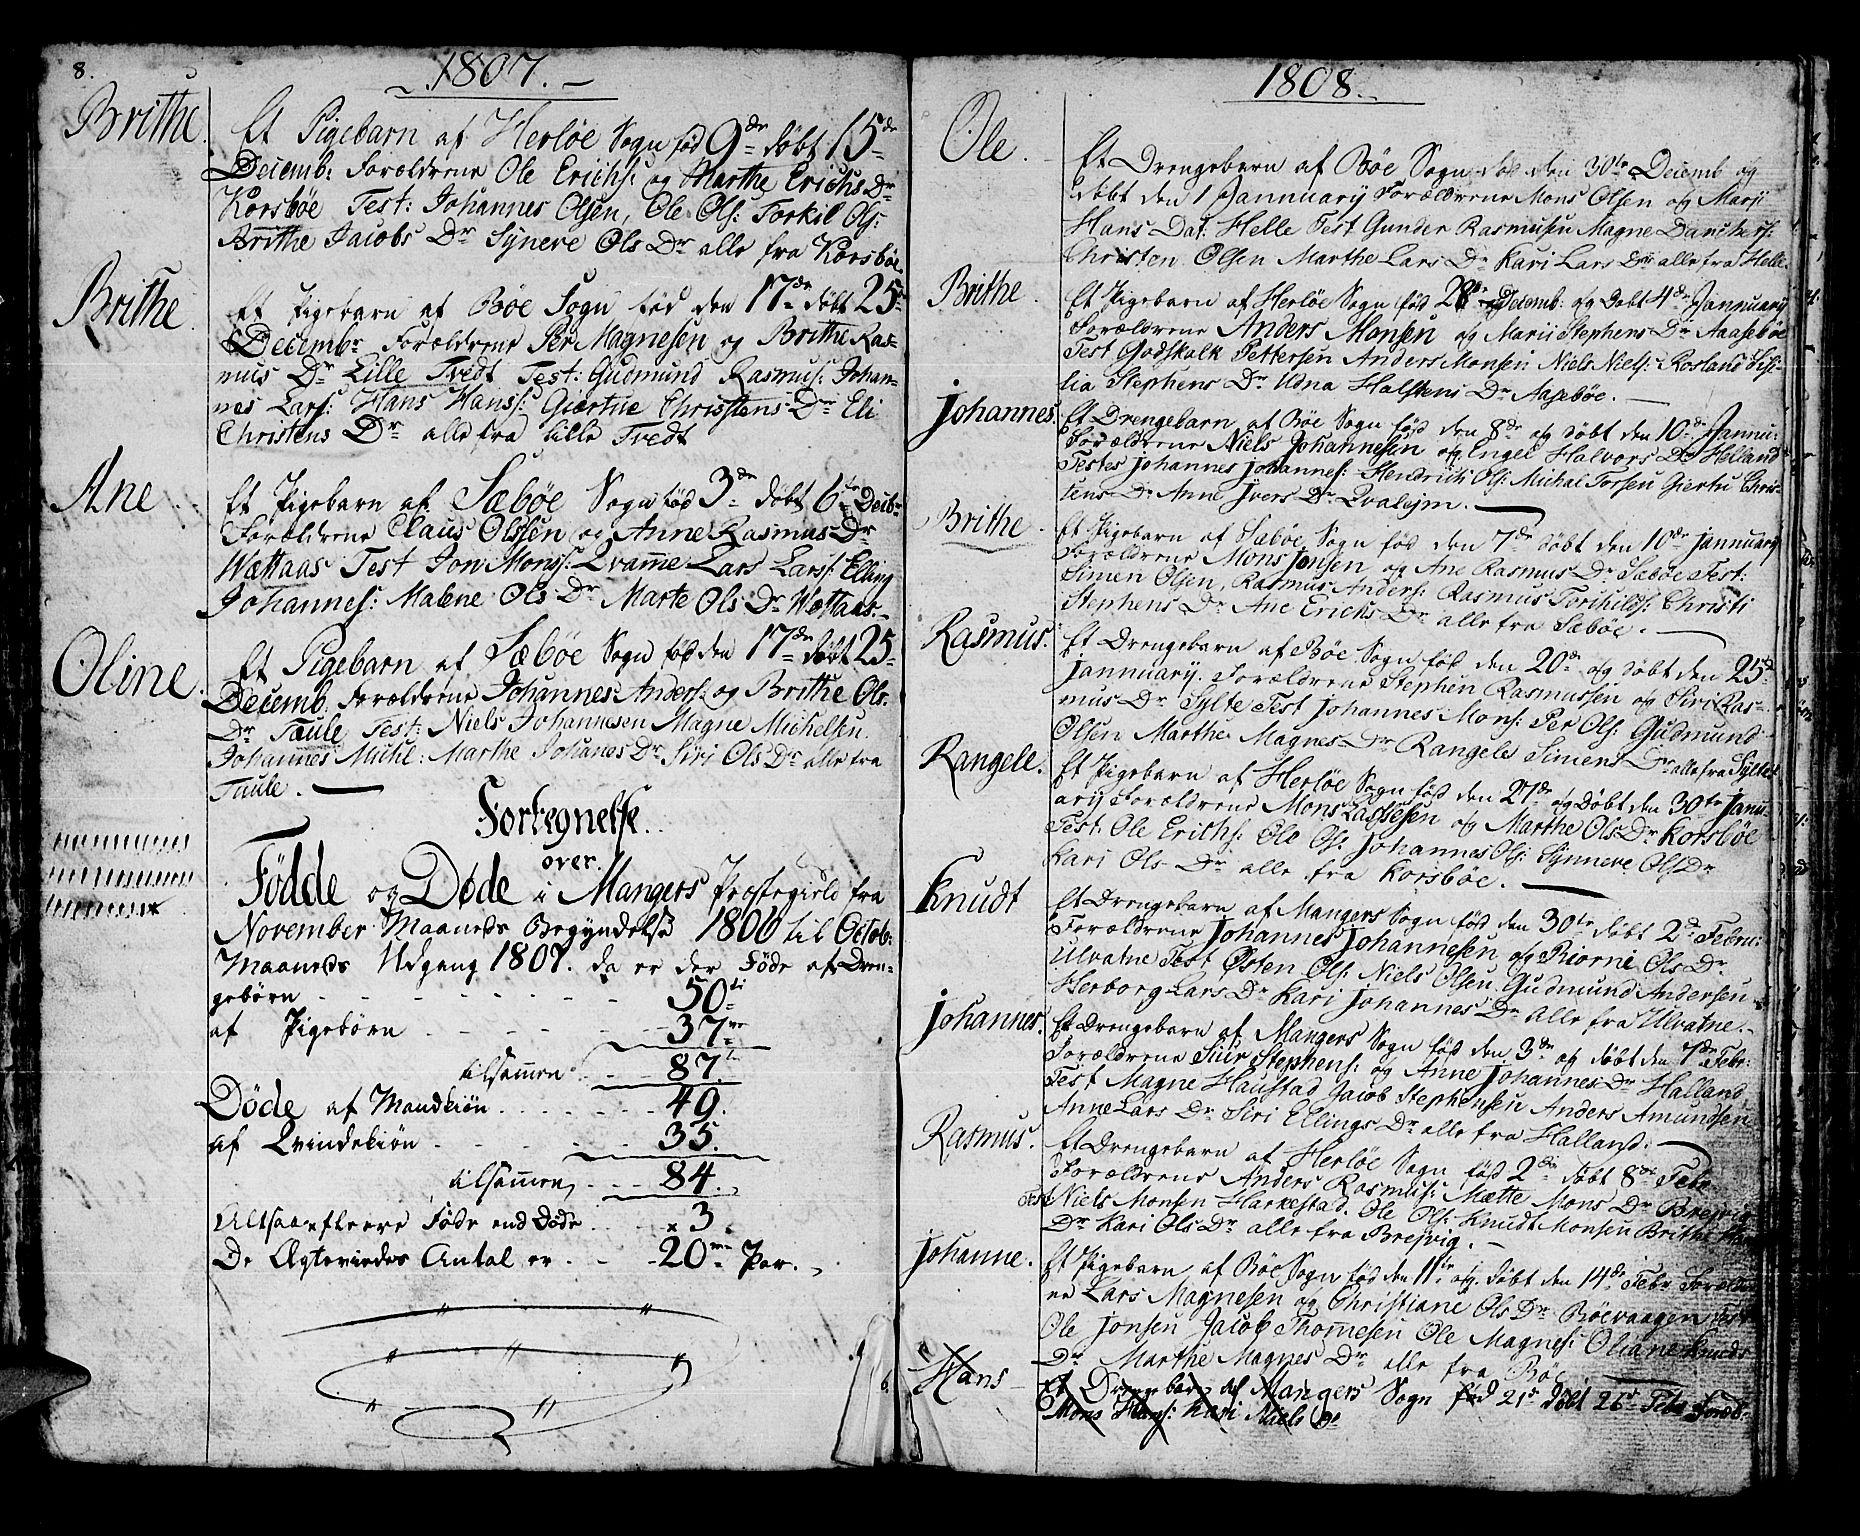 8.
1807.
Brithe
Et Pigebarn af Herløe Sogn fød 9de døbt 15de
Decemb: Forældrene Ole Erichs: og Marthe Erichs Dr
Korsbøe Test: Johannes Olsen, Ole Ols: Torkil Ols:
Brithe Jacobs Dr Syneve Ols Dr alle fra Korsbøe.
Brithe
Et Pigebarn af Bøe Sogn fød den 17de døbt 25
Decembr Forældrene Per Magnesen og Brithe Ras-
mus Dr Lille Tvedt Test: Gudmund Rasmus: Johan-
nes Lars: Hans Hans: Giertue Christens Dr Eli
Christens Dr alle fra Lille Tvedt
Ane
Et Pigebarn af Sæbøe Sogn fød 3de døbt 6te Decbr
Forældrene Claus Olssen og Anne Rasmus Dr
Wættaas Test Jon Mons: Qvamme Lars Lars: Elling
Johannes: Malene Ols Dr Marte Ols Dr Wættaas
Oline.
Et Pigebarn af Sæbøe Sogn fød den 17de døbt 25
Decemb. Forældrene Johannes Anders: og Brithe Ols
Dr Taule Test: Niels Johannesen Magne Michelsen
Johannes Michl: Marthe Johanes Dr Siri Ols Dr alle fra
Taule.
Fortegnelse
over
Fødde og Døde i Mangers Præstegield fra
November Maaneds Begyndelse 1806 til Octob:
Maaneds Udgang 1807. da er der Føde af Dren-
gebørn - - - 50ti
af Pigebørn - - - 37ve
tilsammen - - 87.
Døde af Mandkiøn - - - 49.
af Qvindekiøn - - - 35.
tilsammen, - - 84.
Altsaa fleere Føde end Døde - - 3.
De Ægteviedes Antal er - - 20ve Par.
1808.
Ole
Et Drengebarn af Bøe Sogn fød den 30te Decemb og
døbt den 1 Jannuary Forældrene Mons Olsen og Marji
Hans Dat: Helle Test Gunder Rasmusen Magne Danchers:
Christen Olsen Marthe Lars Dr Kari Lars Dr alle fra Helle.
Brithe
Et Pigebarn af Herløe Sogn fød Decemb: og Døbt 4de Januari
Forældrene Anders Monsen og Marii Stephens Dr Aasebøe
Test Godskalk Pettersen Anders Monsen Niels Niels: Rosland Sisi-
lia Stephens Dr Udna Halstens Dr Aasebøe.
Johannes.
Et Drengebarn af Bøe Sogn fød den 8de og døbt den 10de Jannu:
Forældrene Niels Johannesen og Engel Halvors Dr Helland
Testes Johannes Johannes: Hendrich Ols: Michel Torsen Giertu Chris-
tens Dr Anne Ivers Dr Qvalejm.
Brithe
Et Pigebarn af Sæbøe Sogn fød den 7de døbt den 10de Jannuary
Forældrene Mons Jonsen og Ane Rasmus Dr Sæbøe Test:
Simen Olsen, Rasmus Anders: Rasmus Torchilds: Christi
Stephens Dr Ane Erichs Dr alle fra Sæbøe.
Rasmus.
Et Drengebarn af Bøe Sogn fød den 20de og døbt den 25de
Jannuary. Forældrene Stephen Rasmussen og Siri Ras-
mus Dr Sylte Test Johannes Mons: Per Ols: Gudmund
Olsen Marthe Magnes Dr Rangele Simens Dr alle fra Sylte
Rangele.
Et Pigebarn af Herløe Sogn fød den 27de og Døbt den 30te Janu-
ary Forældrene Mons Lassesen og Marthe Ols Dr Korsbøe
Test. Ole Erichs: Ole Ols. Johannes Ols: Synneve Ols Dr
Kari Ols Dr alle fra Korsbøe.
Knudt
Et Drengebarn af Mangers Sogn fød den 30te døbt 2de Febru:
Forældrene Johannes Johannesen og Biorni Ols Dr
Ulvatne Test Østen Ols: Niels Olsen Gudmund Andersen
Herborg Lars Dr Kari Johannes Dr alle fra Ulvatne.
Johannes.
Et Drengebarn af Mangers Sogn fød den 3de og døbt den 7de Febr:
Forældrene Siur Stephens: og Anne Johannes Dr Halland
Test Magne Haustad Jacob Stephensen Anders Amundsen
Anne Lars Dr Siri Ellings Dr alle fra Halland.
Rasmus.
Et Drengebarn af Herløe Sogn fød 2de døbt 8de Febr
Forældrene Anders Rasmus: Mætte Mons Dr Brejvig
Test Niels Monsen Harkestad. Ole Ols: Knudt Monsen Brithe
Dr Kari Ols Dr alle fra Brejvig.
Johanne.
Et Pigebarn af Bøe Sogn fød den 11te og døbt den 14de Febr Foræld-
ne Lars Magnesen og Christiane Ols Dr Bøevaagen Test
Ole Jonsen Jacob Thomesen Ole Magnes: Oliane Knuds
Dr Marthe Magnes Dr alle fra Bøe
Hans
Et Drengebarn af Mangers Sogn fød 21de døbt 26de Febr Foræld:
Mons Hans: Kari Niels Dr